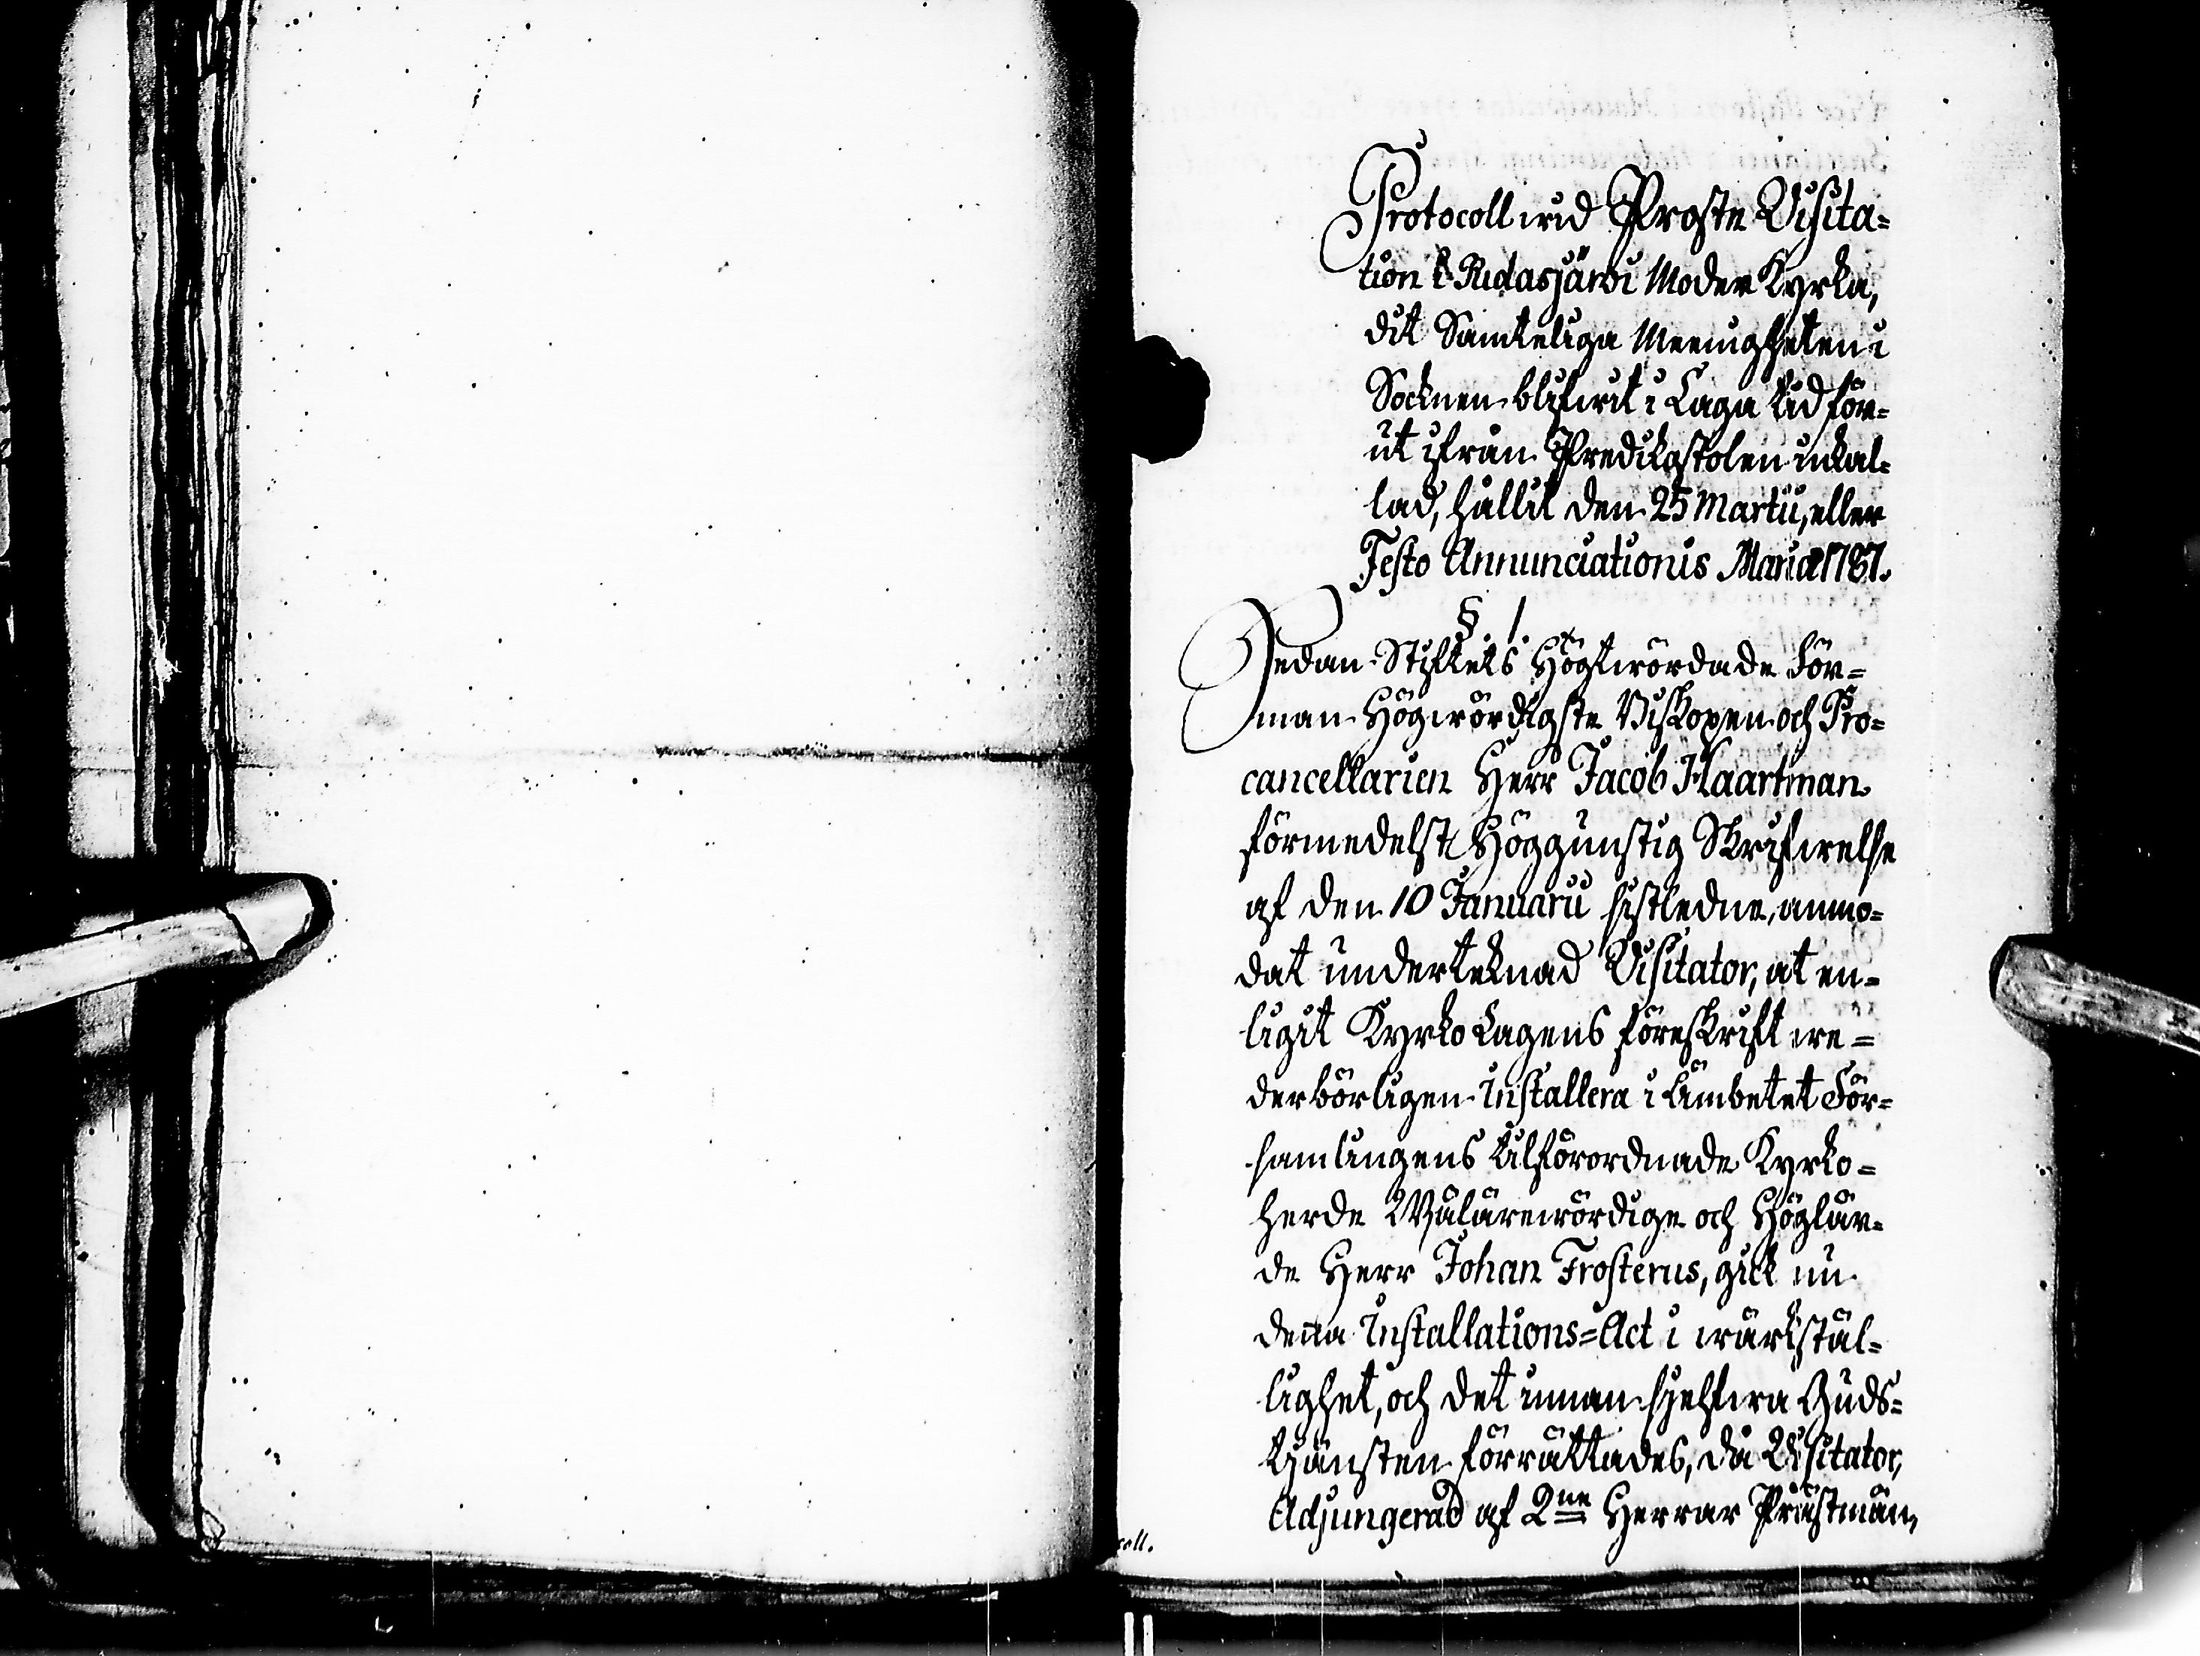 Protocoll wid Proste Visita=
tion i Pudasjärvi Moder Kyrka,
dit Samteliga Meenigheten i
Socknen blifwit i Laga tid för=
ut ifrån Predikostolen inkal=
lad, hållit den 25 Martii, eller
Festo Annunciationis Mariæ 1787.
§. 1.
Sedan Stiftets Högtwördade För=
man Högwördigste Biskopen och Pro=
cancellarien Herr Jacob Haartman
förmedelst Höggunstig Skrifwelse
af den 10 Januarii sistledne, anmo=
dat underteknad Visitator, at en=
ligit Kyrko Lagens föreskrift we=
derbörligen Installera i Ämbetet För=
samlingens tilförordnade Kyrko=
herde Wälärewördige och Höglär=
de Herr Johan Frosterus, gick nu
denna Installations=Act i wärkstäl=
lighet, och det innan sjelfwa Guds=
tjänsten förrättades, då Visitator,
Adjungerad af 2ne Herrar Prästmän,
roll.